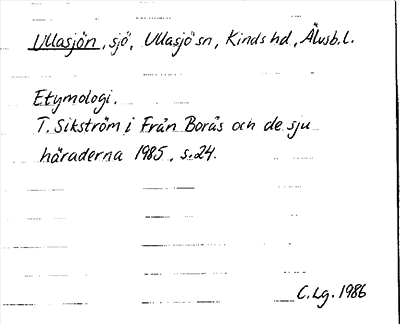 Ullasjön, sjö, Ullasjö sn, Kinds hd, Älvsb.l.
Etymologi.
T. Sikström i Från Borås och de sju
häraderna 1985, s.24.
C.Lg. 1986